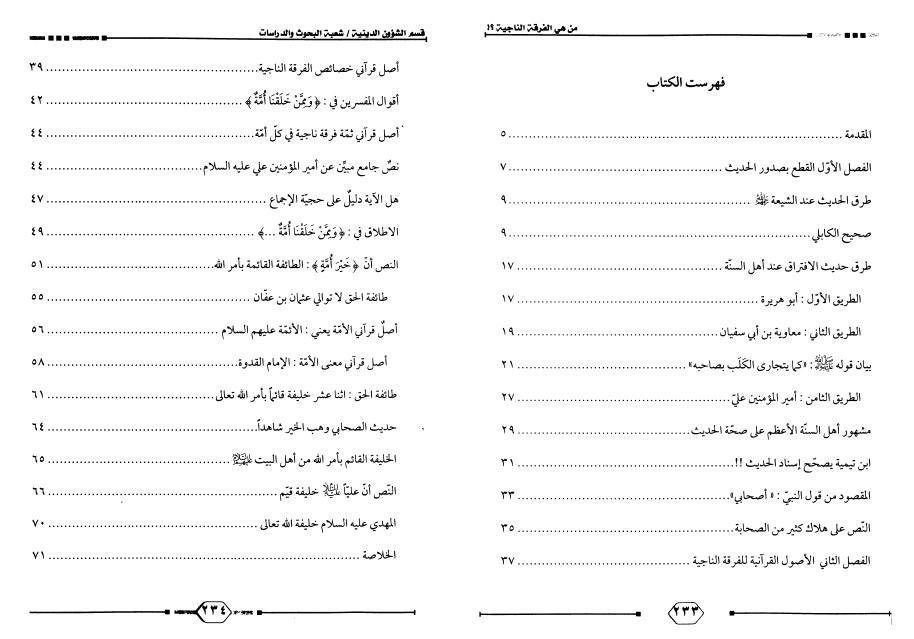 من هي الفرقة الناجية ؟!
فهرست الكتاب
المقدمة ........ ٥
الفصل الأوّل القطع بصدور الحديث ........ ٧
طرق الحديث عند الشيعة ﷺ ........ ٩
صحيح الكابلي ........ ٩
طرق حديث الافتراق عند أهل السنّة ........ ١٧
الطريق الأوّل : أبو هريرة ........ ١٧
الطريق الثاني : معاوية بن أبي سفيان ........ ١٩
بيان قوله ﷺ : «كما يتجارى الكَلَب بصاحبه» ........ ٢١
الطريق الثامن : أمير المؤمنين عليّ ........ ٢٧
مشهور أهل السنّة الأعظم على صحّة الحديث ........ ٢٩
ابن تيمية يصحّح إسناد الحديث !! ........ ٣١
المقصود من قول النبيّ : « أصحابي» ........ ٣٣
النّص على هلاك كثير من الصحابة ........ ٣٥
الفصل الثاني الأصول القرآنية للفرقة الناجية ........ ٣٧
٢٣٣
قسم الشؤون الدينية / شعبة البحوث والدراسات
أصل قرآني خصائص الفرقة الناجية ........ ٣٩
أقوال المفسرين في : ﴿ وَمِمَّنْ خَلَقْنَا أُمَّةٌ ﴾ ........ ٤٢
أصل قرآني ثمّة فرقة ناجية في كلّ أمّة ........ ٤٤
نصٌ جامع مبيّن عن أمير المؤمنين علي عليه السلام ........ ٤٤
هل الآية دليلٌ على حجيّة الإجماع ........ ٤٧
الاطلاق في : ﴿ وَمِمَّنْ خَلَقْنَا أُمَّةٌ ...﴾ ........ ٤٩
النص أنّ ﴿ خَيْرَ أُمَّةٍ ﴾ : الطائفة القائمة بأمر الله ........ ٥١
طائفة الحق لا توالي عثمان بن عفّان ........ ٥٥
أصلٌ قرآني الأمّة يعني : الأئمّة عليهم السلام ........ ٥٦
أصل قرآني معنى الأمّة : الإمام القدوة ........ ٥٨
طائفة الحق : اثنا عشر خليفة قائماً بأمر الله تعالى ........ ٦١
حديث الصحابي وهب الخير شاهداً ........ ٦٤
الخليفة القائم بأمر الله من أهل البيت ........ ٦٥
النّص أنّ عليّاً خليفة قيّم ........ ٦٦
المهدي عليه السلام خليفة الله تعالى ........ ٧٠
الخلاصة ........ ٧١
٢٣٤